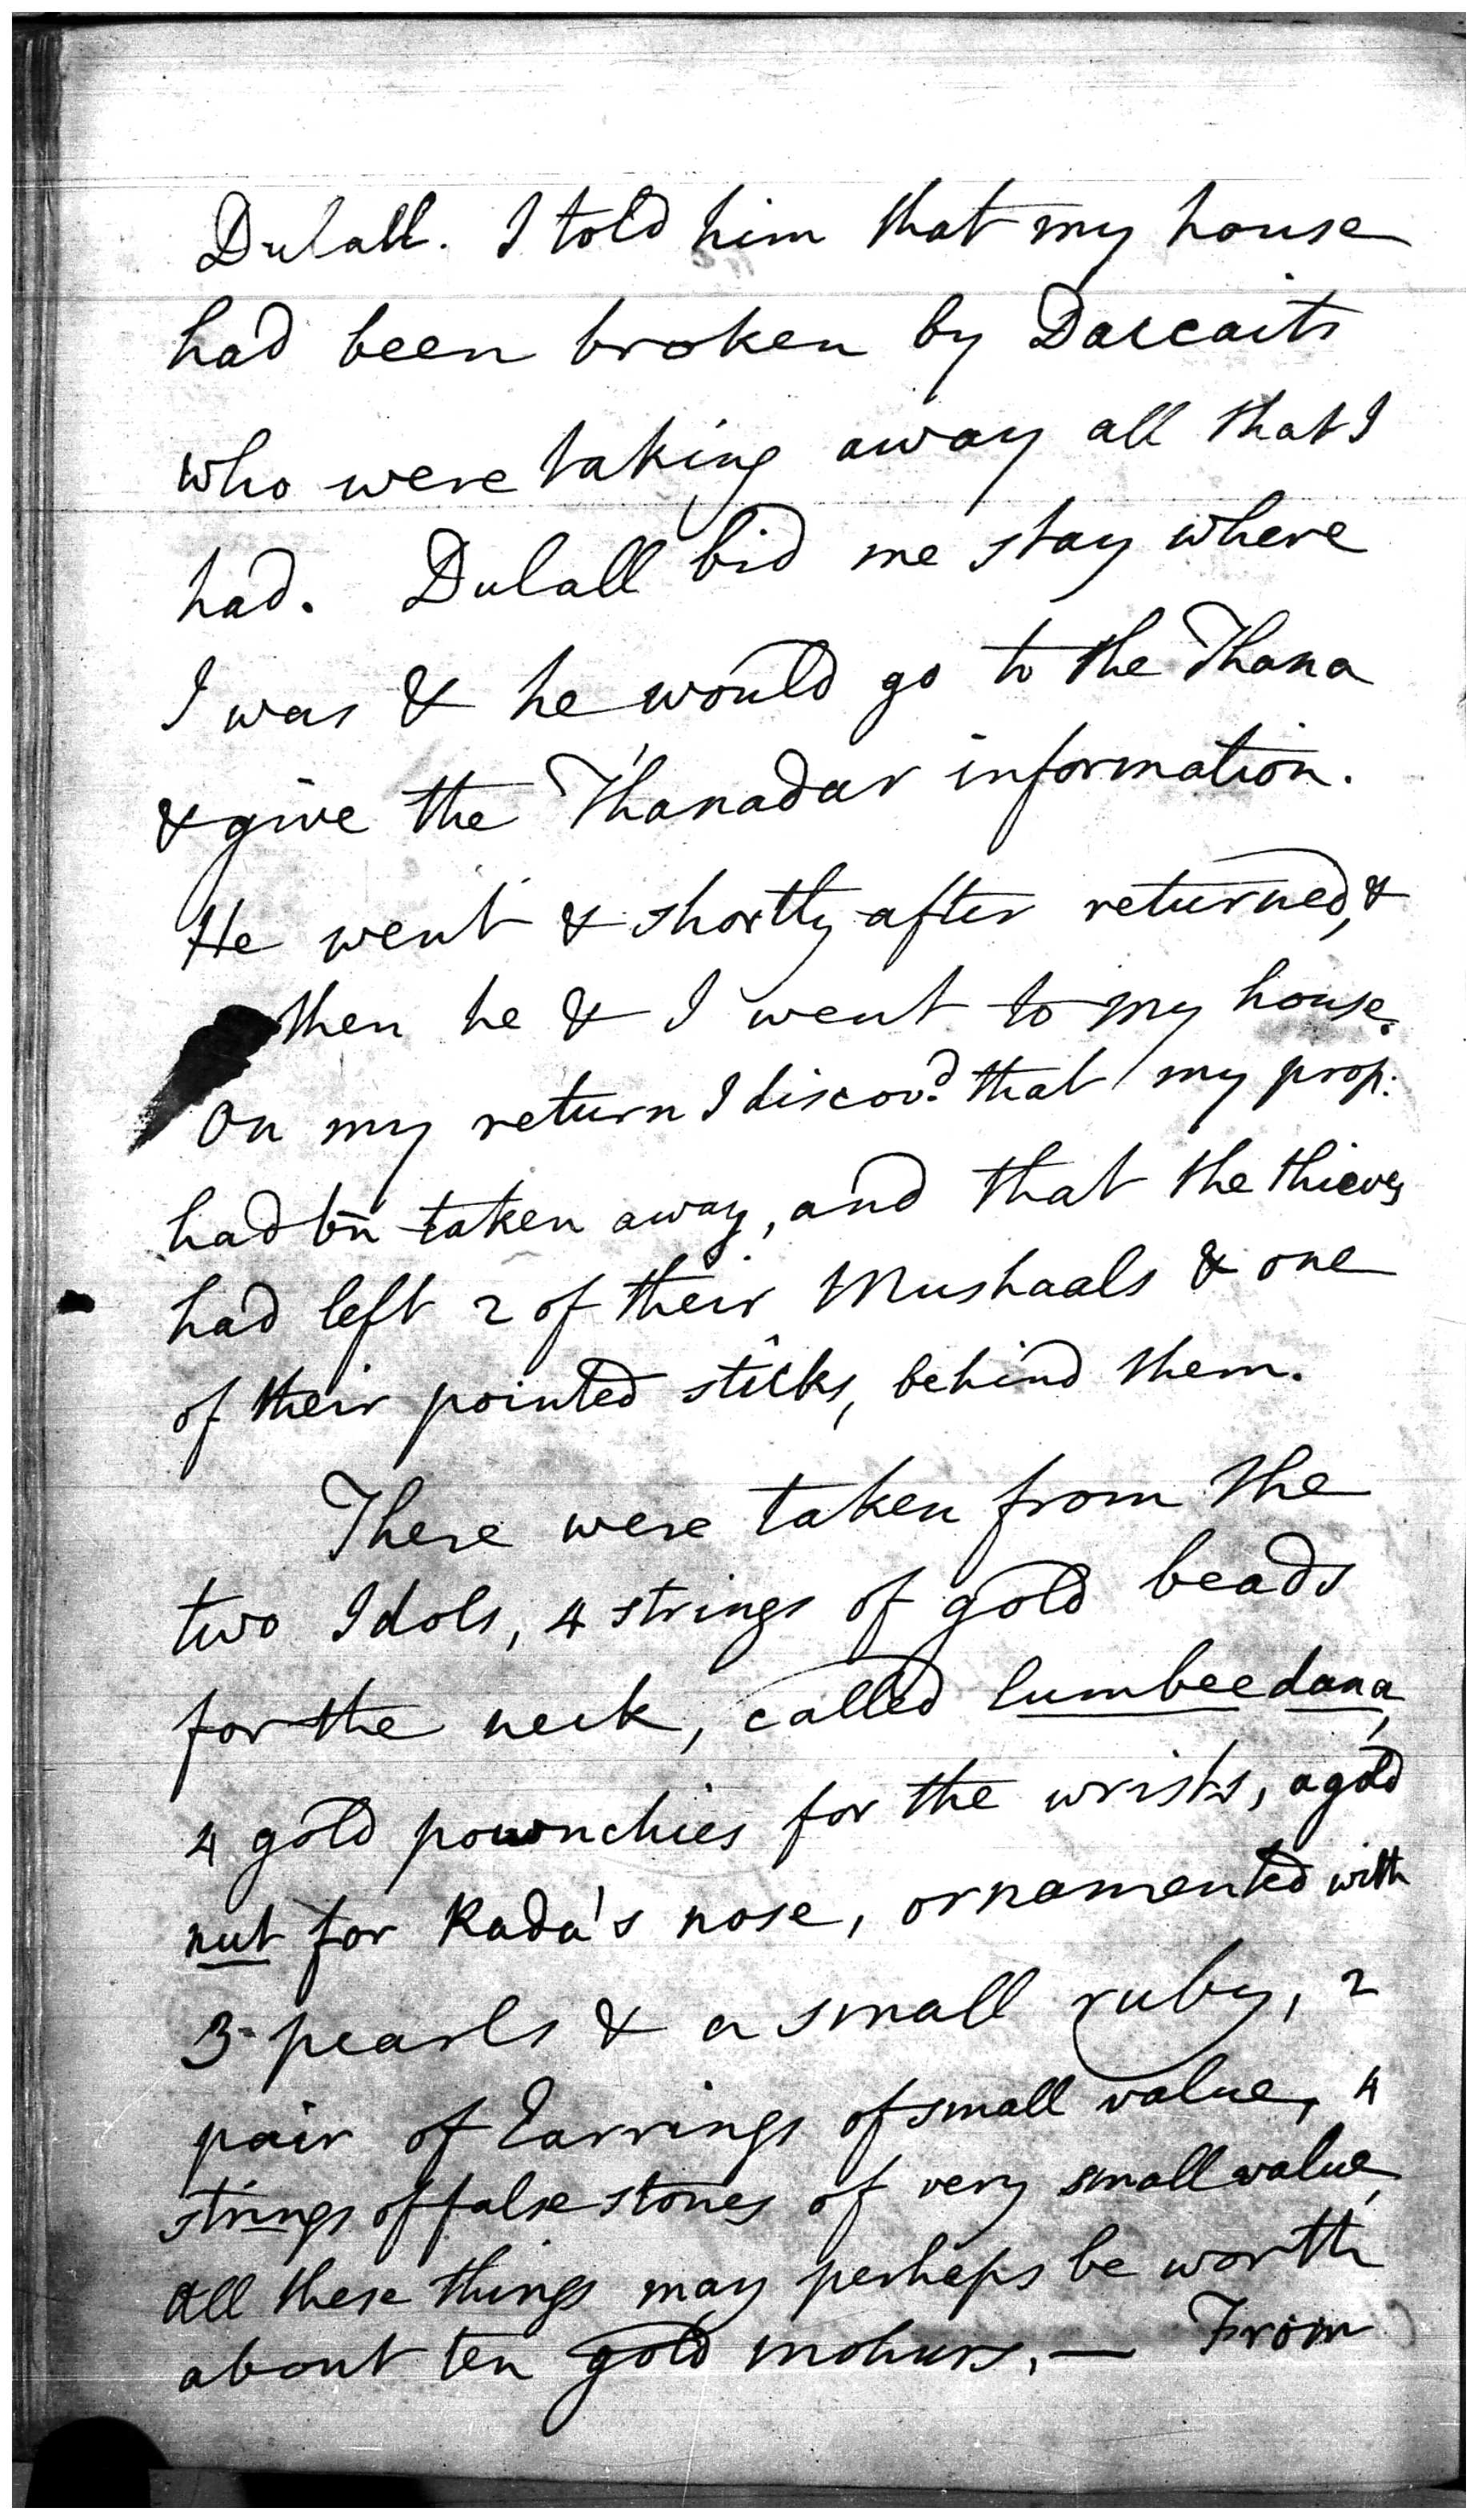 Dulall. I told him that my house
had been broken by Dacaits
who were taking away all that I
had. Dulall bid me stay where
I was & he would go to the Thana
& give the Thanadar information.
He went & shortly after returned, &
then he & I went to my house.
On my return I discov.d that my prop:
had bn taken away, and that the thieves
had left 2 of their Mushaals & one
of their pointed sticks, behind them.
There were taken from the
two Idols, 4 strings of gold beads
for the neck, called lumbee dana,
4 gold pounchies for the wrists, a gold
nut for Rada's nose, ornamented with
3 pearls & a small ruby, 2
pair of Earrings of small value, 4
strings of false stones of very small value,
All these things may perhaps be worth
about ten gold mohurs. — From